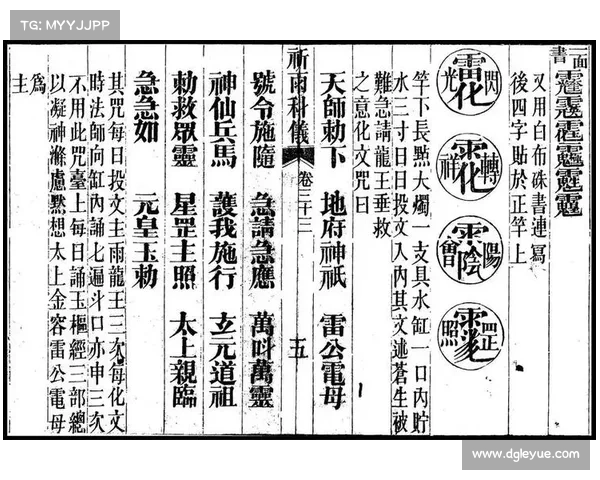 TG: MYYJJPP
二面書
又用白布硃書連寫
後四字貼於正竿上
閃 雷化 光
轉 祥
陽 陰 會
罡 照
竿下長點大燭一支具水缸一口內貯
水三寸日日投文入內其文述蒼生被
難急請龍王垂救
之意化文咒曰
天師勅下 地府神祇 雷公電母
祈雨科儀 卷三十三 五
號令施隨 急請急應 萬叫萬靈
神仙兵馬 護我施行 玄元道祖
勅救眾靈 星罡主照 太上親臨
急急如 元皇玉勅
其咒每日投文主雨龍王三次每化文
時法師向缸內誦七遍斗口亦申三次
不用此咒臺上每日誦玉樞經三部總
以凝神滌慮默想太上金容雷公電母
爲
主
www.dgleyue.com